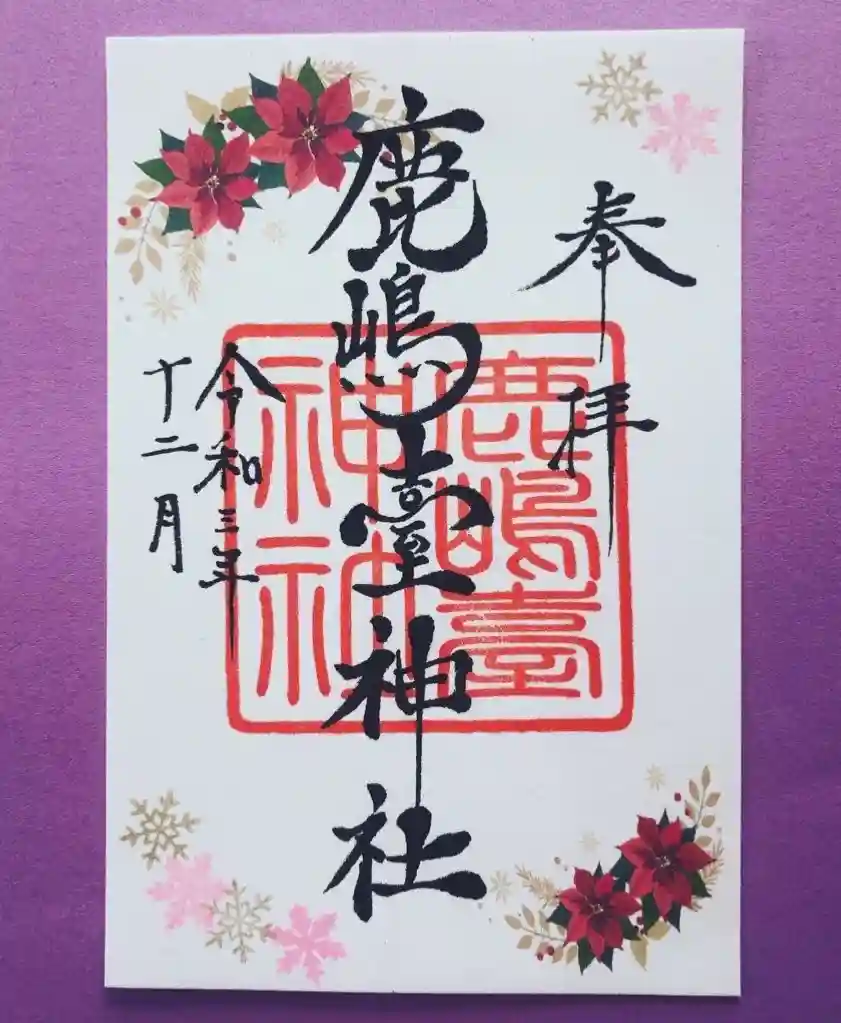 奉拝
鹿嶋臺神社
鹿嶋臺
神
令和三年
十二月